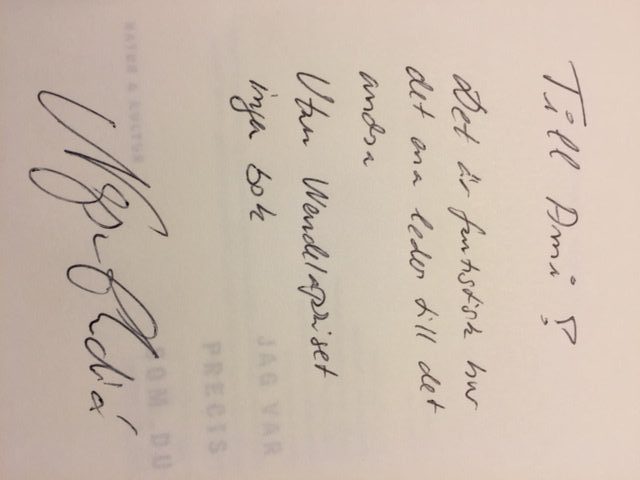 Till Ami!
Det är fantistisk hur
det ena leder till det
andra
Utan Wendelapriset
inga bok
JAG VAR
PRECIS
SOM DU
NATUR & KULTUR